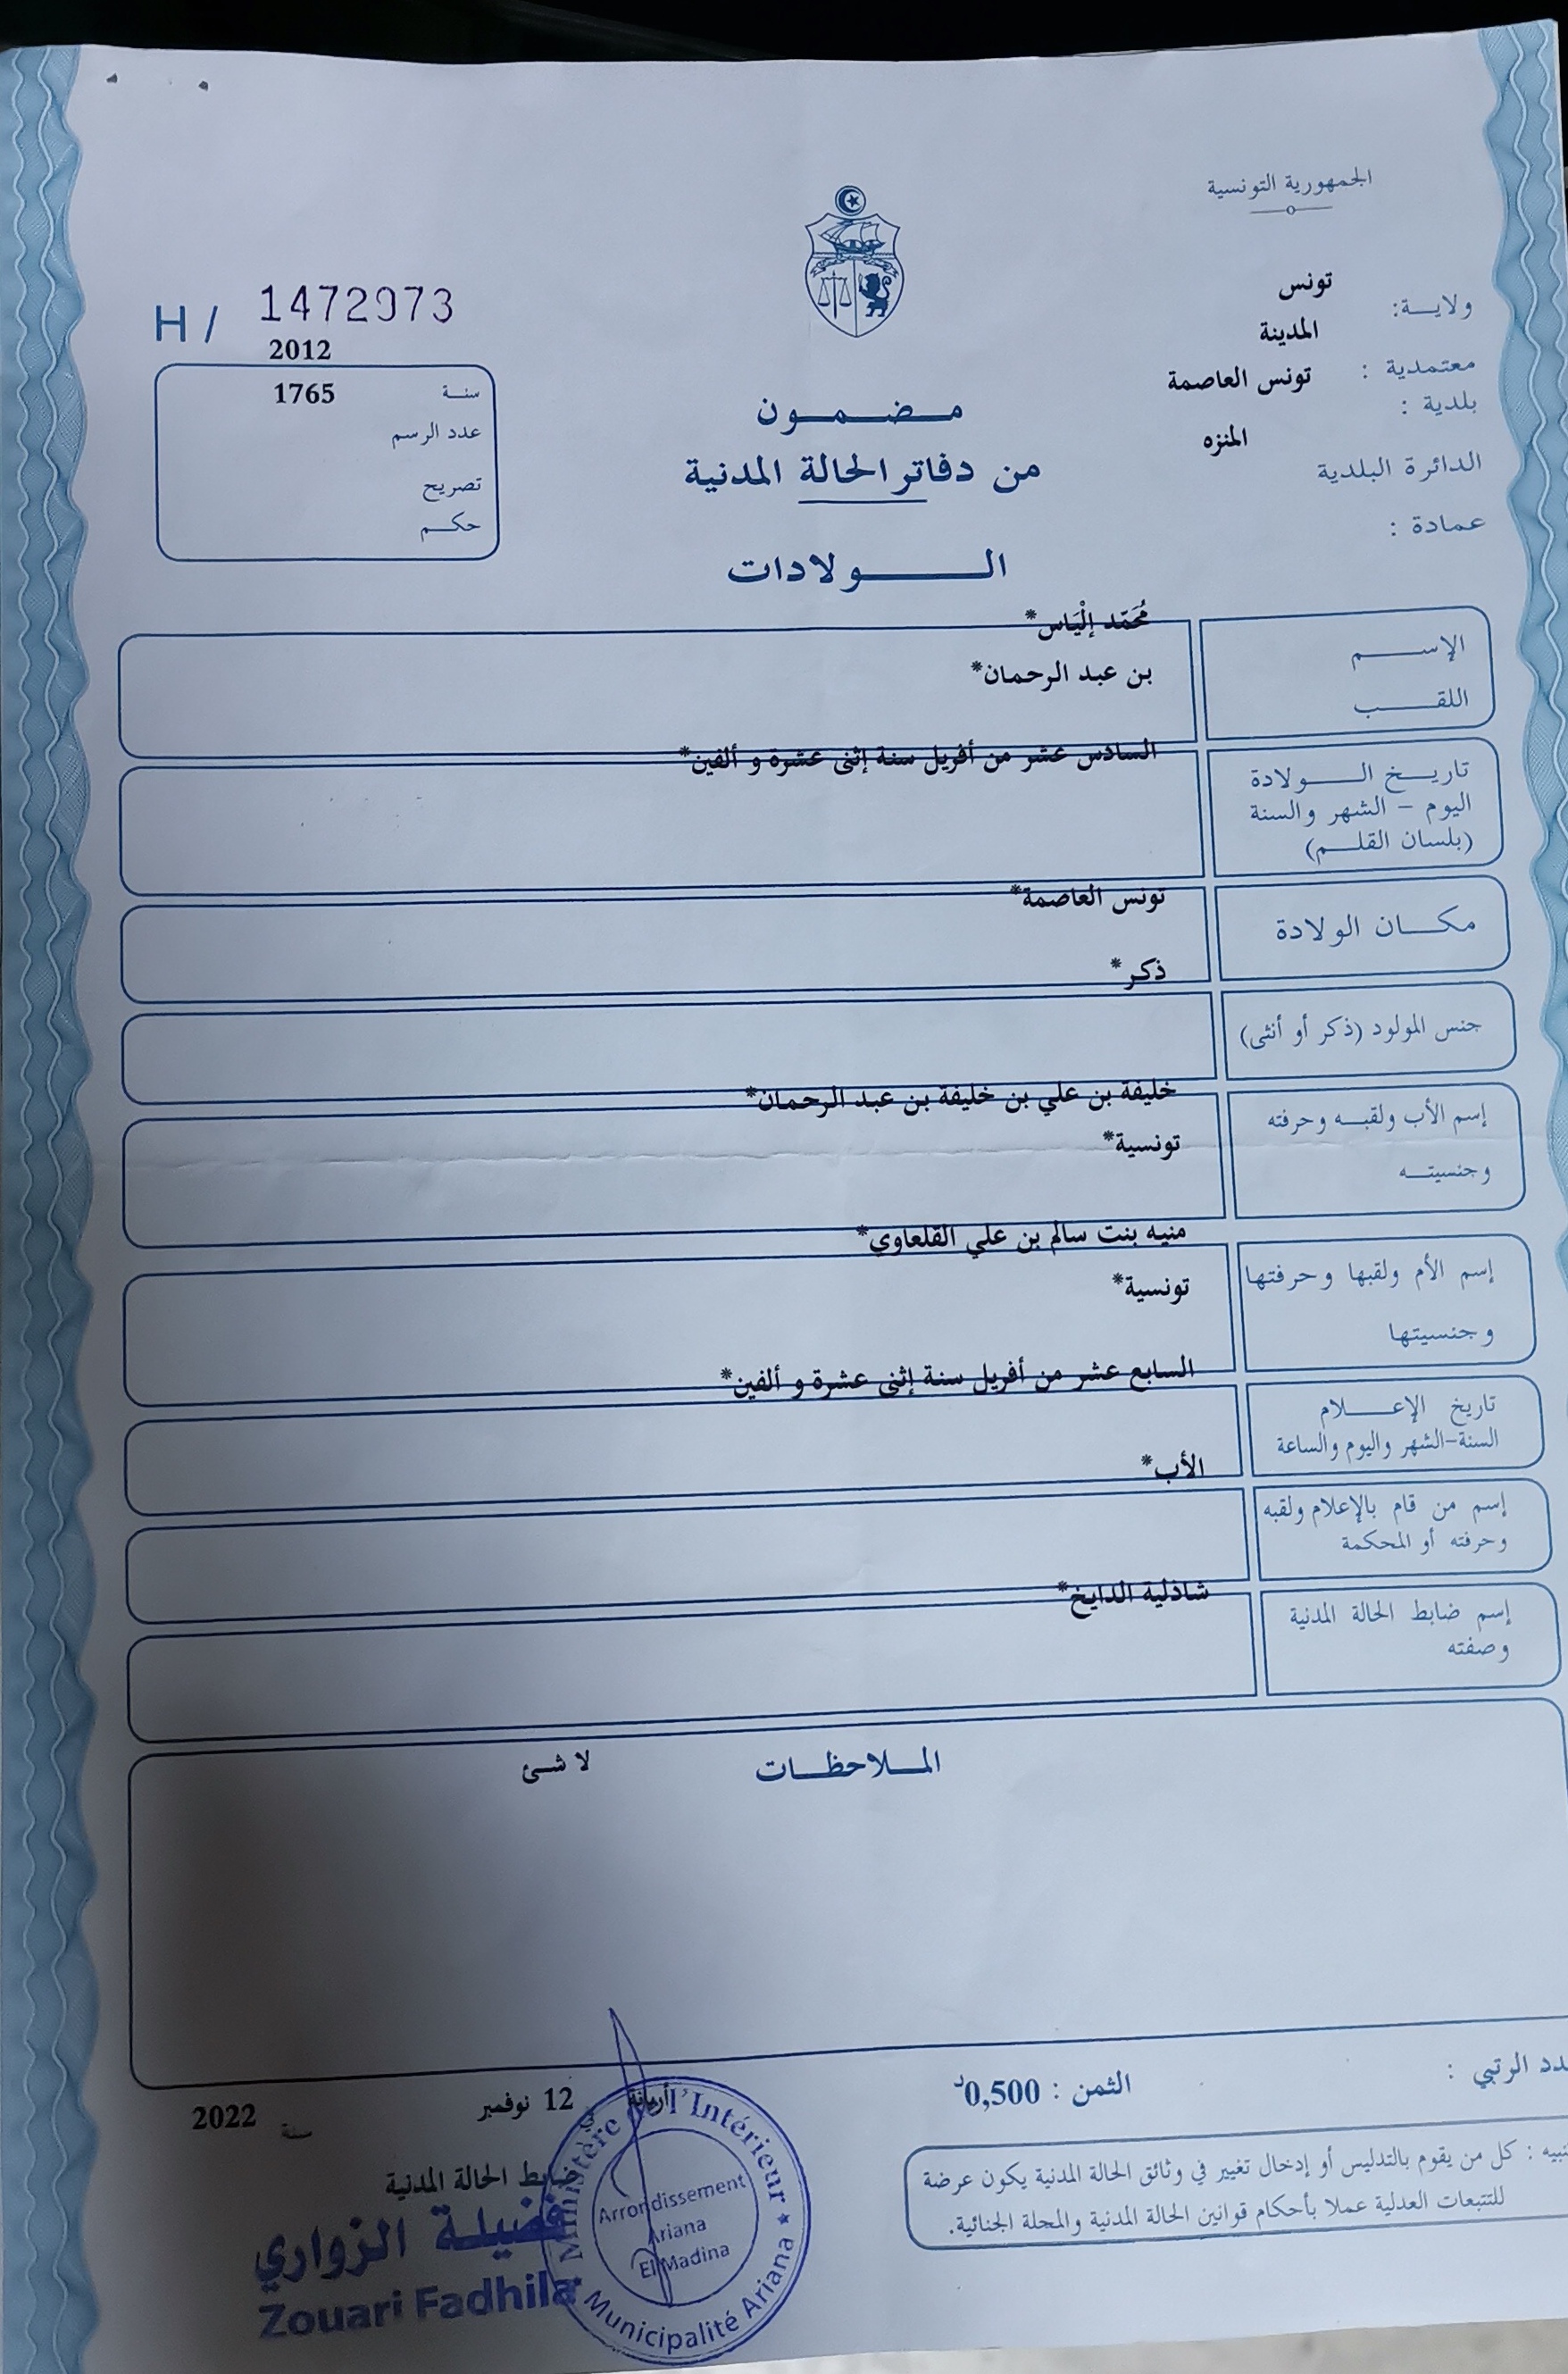 الجمهورية التونسية
ولايــة: تونس
معتمدية : المدينة
بلدية : تونس العاصمة
الدائرة البلدية المنزه
عمادة :
H/ 1472973
سنـة 2012
عدد الرسم 1765
تصريح
حكـم
مـضـمـون
من دفاتر الحالة المدنية
الـــولادات
الإســـم مُحَمّد إلْيَاس*
اللقـــب بن عبد الرحمان*
تاريـخ الــولادة السادس عشر من أفريل سنة إثنى عشرة و ألفين*
اليوم - الشهر والسنة
(بلسان القلـم)
مكـــان الولادة تونس العاصمة*
جنس المولود (ذكر أو أنثى) ذكر*
إسم الأب ولقبـه وحرفته خليفة بن علي بن خليفة بن عبد الرحمان*
وجنسيتـه تونسية*
إسم الأم ولقبها وحرفتها منيه بنت سالم بن علي القلعاوي*
وجنسيتها تونسية*
تاريخ الإعـــلام السابع عشر من أفريل سنة إثنى عشرة و ألفين*
السنة-الشهر واليوم والساعة
إسم من قام بالإعلام ولقبه الأب*
وحرفته أو المحكمة
إسم ضابط الحالة المدنية شاذلية الدايخ*
وصفته
المـلاحظـات لا شئ
دد الرتبي :
الثمن : 0,500د
أريانة في 12 نوفمبر سنة 2022
نبيه : كل من يقوم بالتدليس أو إدخال تغيير في وثائق الحالة المدنية يكون عرضة
للتتبعات العدلية عملا بأحكام قوانين الحالة المدنية والمجلة الجنائية.
ضابط الحالة المدنية
فضيلة الزواري
Zouari Fadhila
Ministère de l'Intérieur
Arrondissement
Ariana
El Madina
Municipalité Ariana